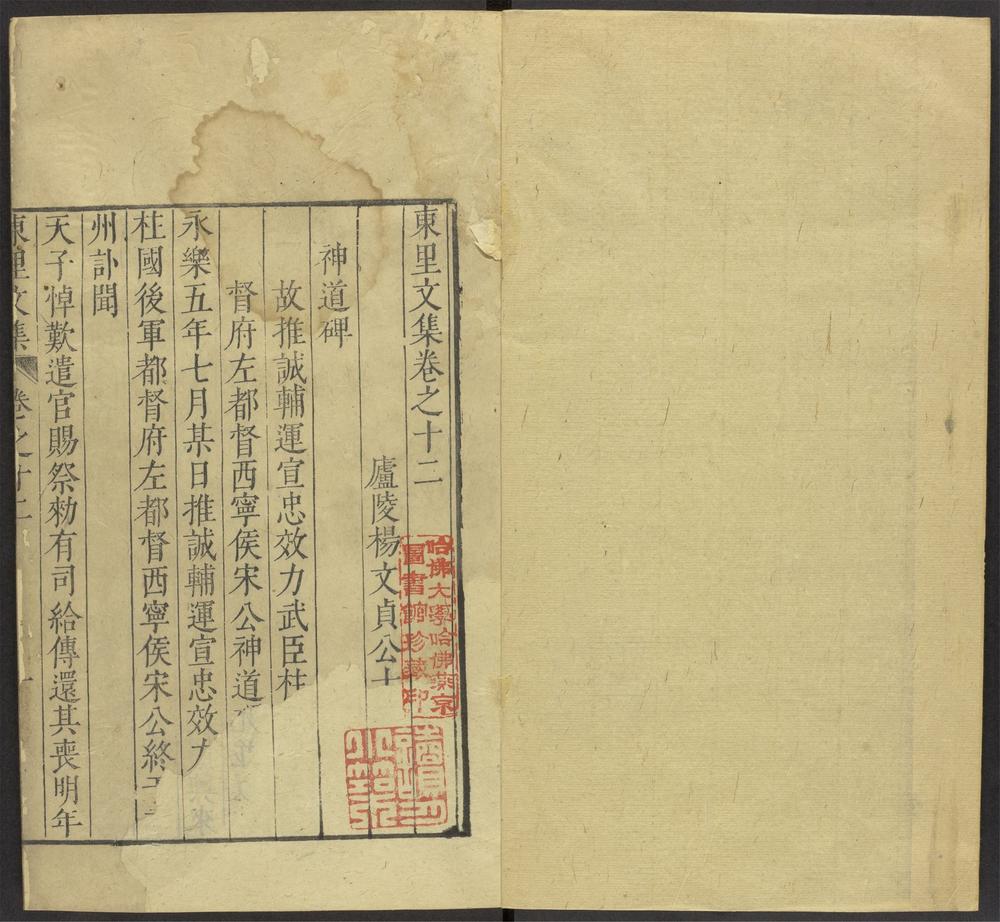 東里文集卷之十二
廬陵楊文貞公士
神道碑
故推誠輔運宣忠效力武臣柱
督府左都督西寧侯宋公神道
永樂五年七月某日推誠輔運宣忠效力
柱國後軍都督府左都督西寧侯宋公終于
州訃聞
天子悼歎遣官賜祭勑有司給傳還其喪明年
東里文集 卷之十二
哈佛大學哈佛燕京
圖書館珍藏印